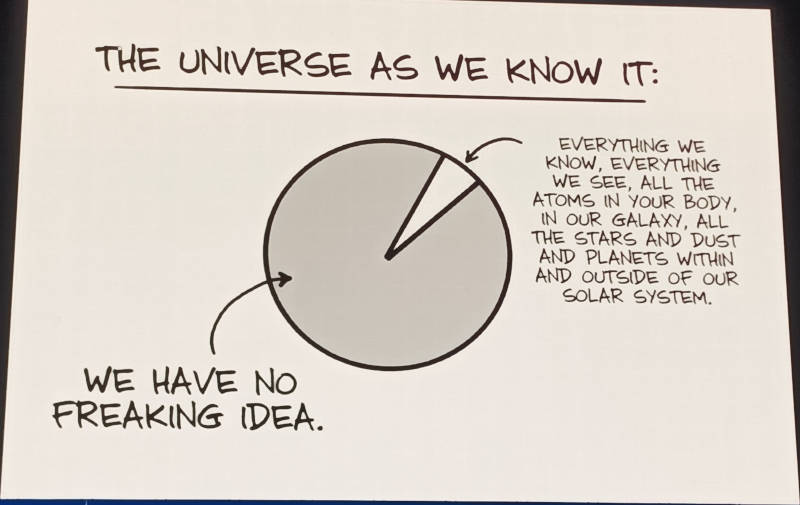 THE UNIVERSE AS WE KNOW IT:
EVERYTHING WE
KNOW, EVERYTHING
WE SEE, ALL THE
ATOMS IN YOUR BODY,
IN OUR GALAXY, ALL
THE STARS AND DUST
AND PLANETS WITHIN
AND OUTSIDE OF OUR
SOLAR SYSTEM.
WE HAVE NO
FREAKING IDEA.